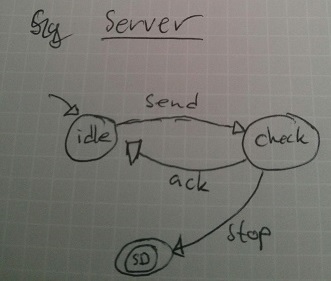 Server
send
idle
check
ack
stop
SD